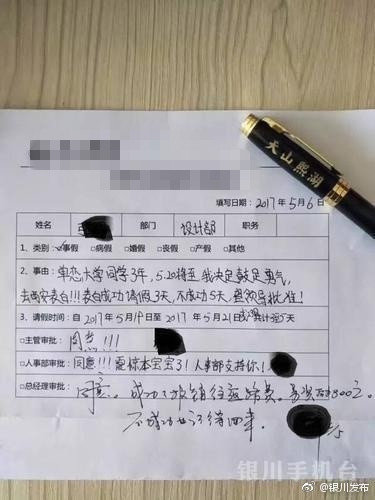 天山熙湖
填写日期: 2017年5月6日
姓名 部门 设计部 职务
1、类别: ☑事假 □病假 □婚假 □丧假 □产假 □其他
2、事由: 单恋大学同学3年,5.20将至,我决定鼓足勇气,
去西安表白!!!表白成功请假3天,不成功5天,望领导批准!
3、请假时间: 自2017年5月19日至2017年5月21日 共计 5天
□主管审批: 同意!!!
□人事部审批: 同意!!!震惊本宝宝了!人事部支持你!
□总经理审批: 同意。成功了报销往返路费。
不成功
银川手机台
@银川发布